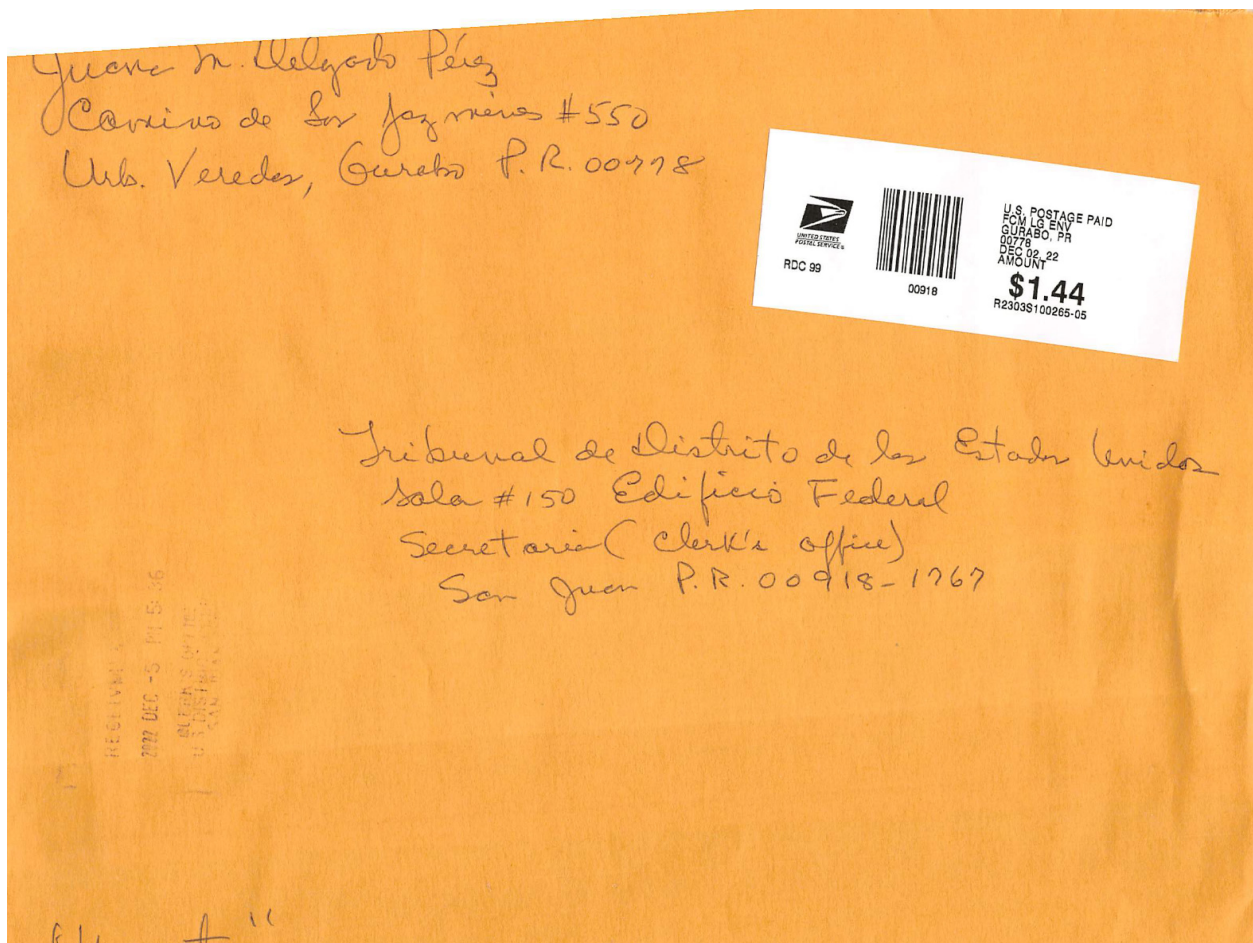 Juana M. Delgado Pérez
Camino de Los Jazmines #550
Urb. Veredas, Gurabo P.R. 00778
UNITED STATES
POSTAL SERVICE®
RDC 99
00918
U.S. POSTAGE PAID
FCM LG ENV
GURABO, PR
00778
DEC 02, 22
AMOUNT
$1.44
R2303S100265-05
Tribunal de Distrito de los Estados Unidos
Sala #150 Edificio Federal
Secretaria (Clerk's office)
San Juan P.R. 00918-1767
RECEIVED
2022 DEC -5 PM 5:36
CLERK'S OFFICE